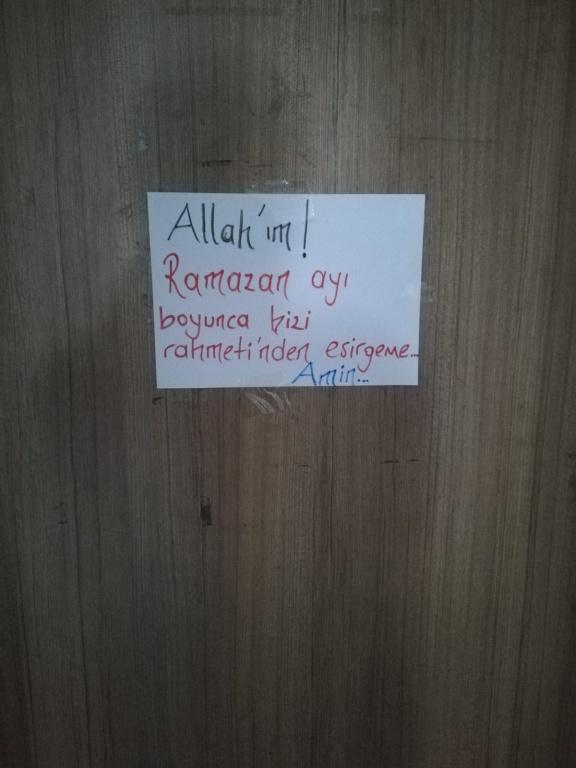 Allah'ım!
Ramazan ayı
boyunca bizi
rahmeti'nden esirgeme...
Amin...